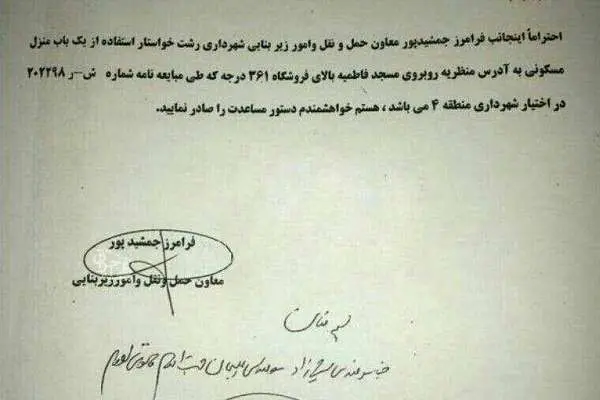 احتراماً اینجانب فرامرز جمشیدپور معاون حمل و نقل وامور زیر بنایی شهرداری رشت خواستار استفاده از یک باب منزل
مسکونی به آدرس منظریه روبروی مسجد فاطمیه بالای فروشگاه ۳۶۱ درجه که طی مبایعه نامه شماره ش-ر ۲۰۲۲۹۸
در اختیار شهرداری منطقه ۴ می باشد ، هستم خواهشمندم دستور مساعدت را صادر نمایید.
فرامرز جمشید پور
معاون حمل ونقل وامورزیربنایی
جهت اقدام قانونی